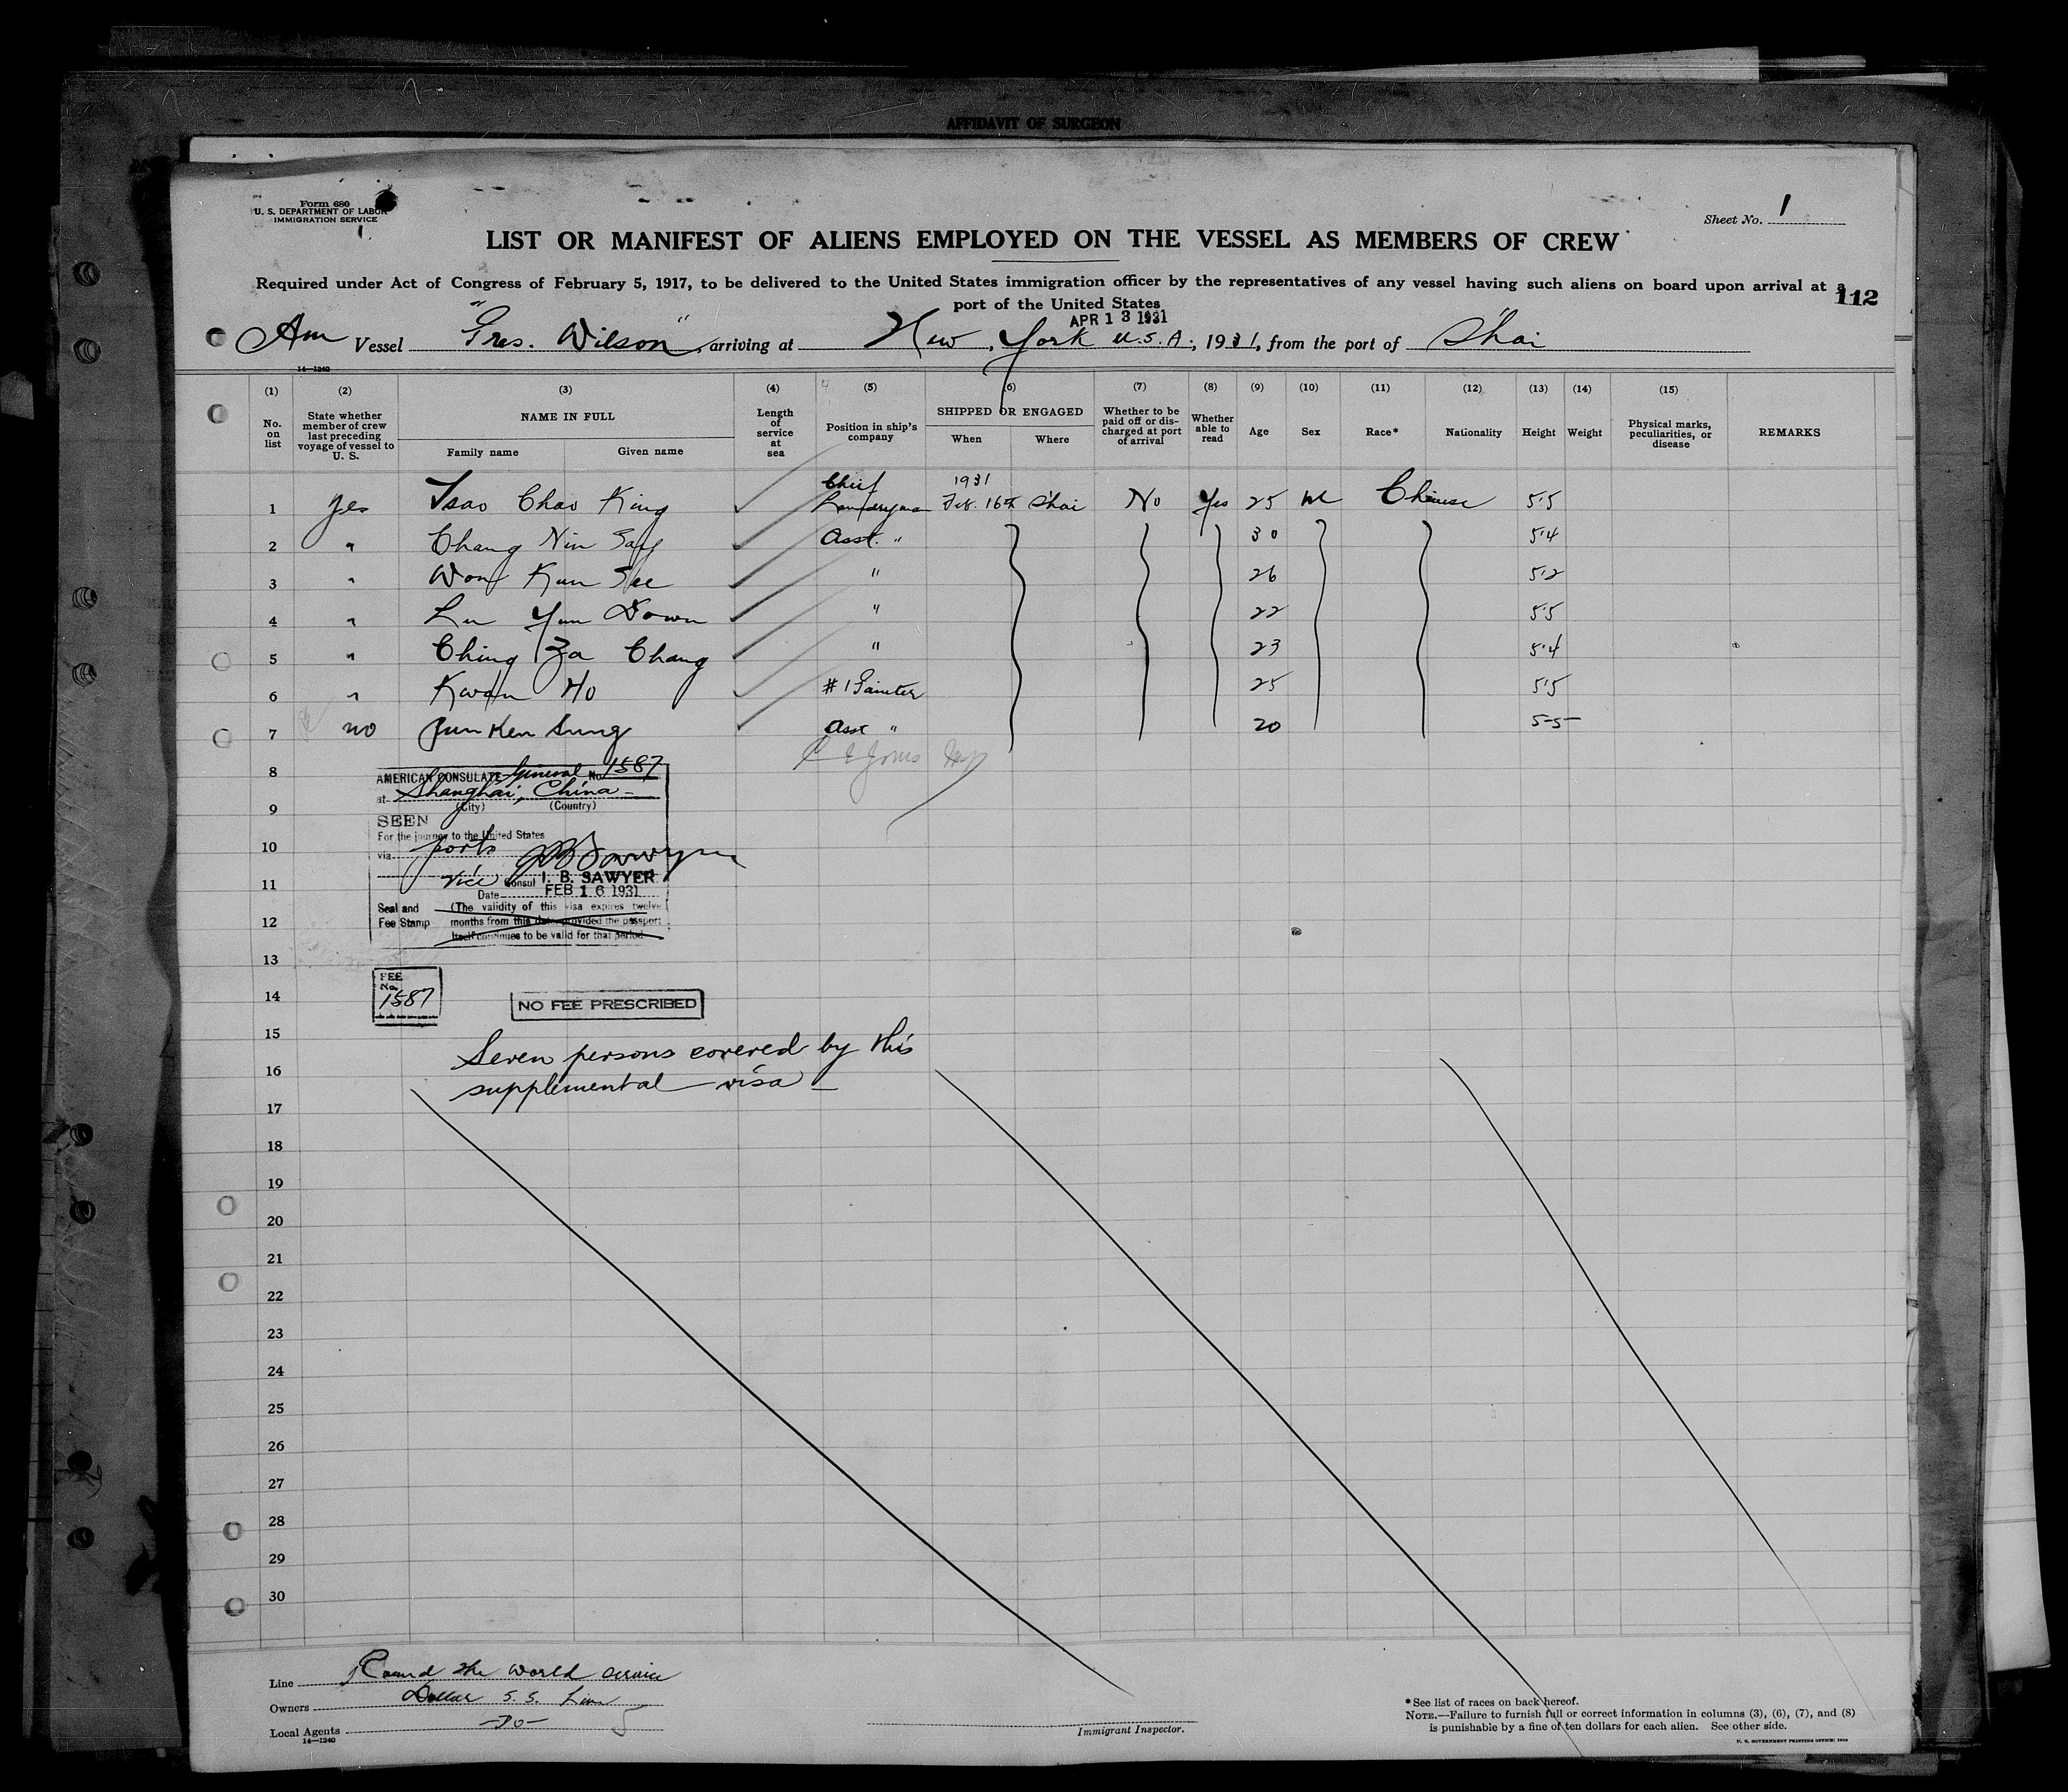 AFFIDAVIT OF SURGEON
Form 680
U. S. DEPARTMENT OF LABOR
IMMIGRATION SERVICE
Sheet No. 1
LIST OR MANIFEST OF ALIENS EMPLOYED ON THE VESSEL AS MEMBERS OF CREW
Required under Act of Congress of February 5, 1917, to be delivered to the United States immigration officer by the representatives of any vessel having such aliens on board upon arrival at a
port of the United States
112
APR 13 1931
Am Vessel "Pres. Wilson", arriving at New York U.S.A., 1931, from the port of S'hai
14—1240
(1) (2) (3) (4) (5) (6) (7) (8) (9) (10) (11) (12) (13) (14) (15)
No. on list
State whether member of crew last preceding voyage of vessel to U. S.
NAME IN FULL
Family name Given name
Length of service at sea
Position in ship's company
SHIPPED OR ENGAGED
When Where
Whether to be paid off or discharged at port of arrival
Whether able to read
Age
Sex
Race*
Nationality
Height
Weight
Physical marks, peculiarities, or disease
REMARKS
1 Yes Tsao Chao King Chief Laundryman 1931 Feb. 16th S'hai No Yes 25 M Chinese 5'5
2 " Chang Nin Say Asst. " 30 5'4
3 " Won Kun See " 26 5'2
4 " Lu Yun Down " 22 5'5
5 " Ching Za Chang " 23 5'4
6 " Kwan Ho #1 Painter 25 5'5
7 no Jun Ken Sung Asst " 20 5-5-
8
9
10
11
12
13
14
15
16
17
18
19
20
21
22
23
24
25
26
27
28
29
30
AMERICAN CONSULATE General No. 1587
at Shanghai, China
(City) (Country)
SEEN
For the journey to the United States
via ports
Vice Consul I. B. SAWYER
Date FEB 16 1931
Seal and Fee Stamp
(The validity of this visa expires twelve
months from this date provided the passport
itself continues to be valid for that period
FEE No. 1587
NO FEE PRESCRIBED
Seven persons covered by this
supplemental visa
Line Round the World Service
Owners Dollar S. S. Line
Local Agents —Do—
14—1240
Immigrant Inspector.
*See list of races on back hereof.
NOTE.—Failure to furnish full or correct information in columns (3), (6), (7), and (8)
is punishable by a fine of ten dollars for each alien. See other side.